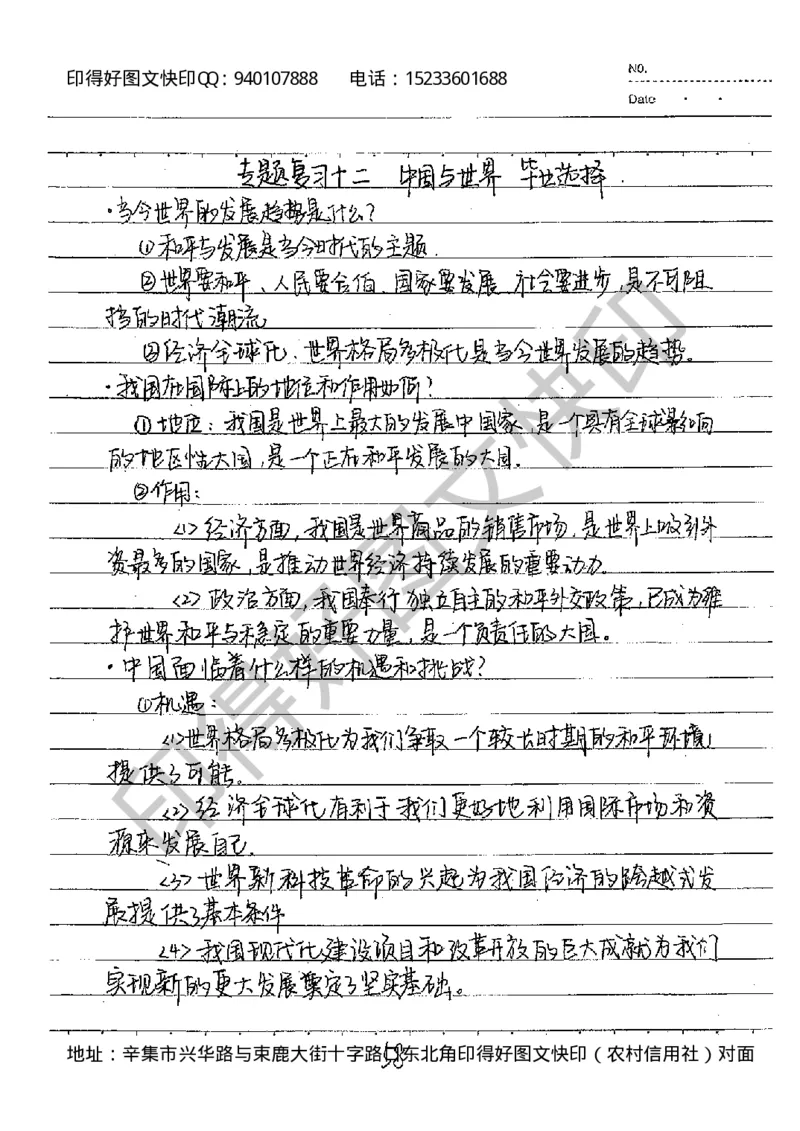 印得好图文快印QQ：940107888 电话：15233601688
NO.
Date
专题复习十二 中国与世界 毕业选择
·当今世界的发展趋势是什么？
①和平与发展是当今时代的主题.
②世界要和平、人民要合作、国家要发展、社会要进步,是不可阻
挡的时代潮流
③经济全球化、世界格局多极化是当今世界发展的趋势。
·我国在国际上的地位和作用如何？
①地位：我国是世界上最大的发展中国家,是一个具有全球影响
的地区性大国,是一个正在和平发展的大国.
②作用：
<1>经济方面,我国是世界商品的销售市场,是世界上吸引外
资最多的国家,是推动世界经济持续发展的重要动力.
<2>政治方面,我国奉行独立自主的和平外交政策,已成为维
护世界和平与稳定的重要力量,是一个负责任的大国。
·中国面临着什么样的机遇和挑战？
①机遇：
<1>世界格局多极化为我们争取一个较长时期的和平环境
提供了可能.
<2>经济全球化有利于我们更好地利用国际市场和资
源来发展自己.
<3>世界新科技革命的兴起为我国经济的跨越式发
展提供了基本条件
<4>我国现代化建设项目和改革开放的巨大成就为我们
实现新的更大发展奠定了坚实基础。
58
地址：辛集市兴华路与束鹿大街十字路口东北角印得好图文快印（农村信用社）对面
印得好图文快印